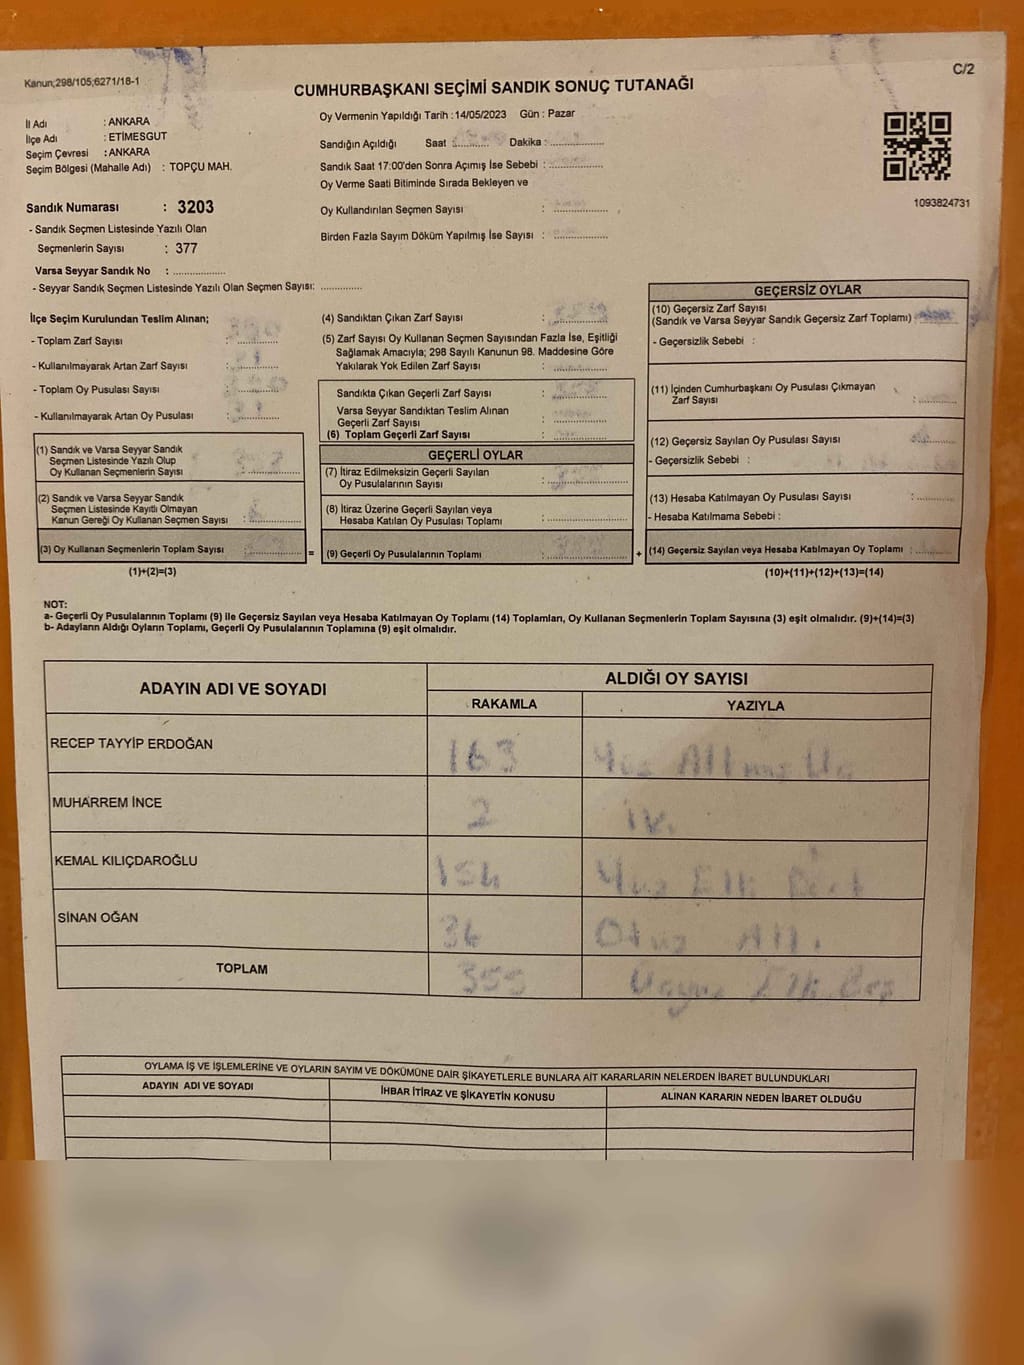 Kanun;298/105;6271/18-1
C/2
CUMHURBAŞKANI SEÇİMİ SANDIK SONUÇ TUTANAĞI
İl Adı : ANKARA
İlçe Adı : ETİMESGUT
Seçim Çevresi : ANKARA
Seçim Bölgesi (Mahalle Adı) : TOPÇU MAH.
Sandık Numarası : 3203
- Sandık Seçmen Listesinde Yazılı Olan
Seçmenlerin Sayısı : 377
Varsa Seyyar Sandık No : ................
- Seyyar Sandık Seçmen Listesinde Yazılı Olan Seçmen Sayısı: .............
Oy Vermenin Yapıldığı Tarih :14/05/2023 Gün : Pazar
Sandığın Açıldığı Saat Dakika :
Sandık Saat 17:00'den Sonra Açımış İse Sebebi :
Oy Verme Saati Bitiminde Sırada Bekleyen ve
Oy Kullandırılan Seçmen Sayısı :
Birden Fazla Sayım Döküm Yapılmış İse Sayısı :
1093824731
İlçe Seçim Kurulundan Teslim Alınan;
- Toplam Zarf Sayısı :
- Kullanılmayarak Artan Zarf Sayısı :
- Toplam Oy Pusulası Sayısı :
- Kullanılmayarak Artan Oy Pusulası :
(1) Sandık ve Varsa Seyyar Sandık
Seçmen Listesinde Yazılı Olup
Oy Kullanan Seçmenlerin Sayısı :
(2) Sandık ve Varsa Seyyar Sandık
Seçmen Listesinde Kayıtlı Olmayan
Kanun Gereği Oy Kullanan Seçmen Sayısı :
(3) Oy Kullanan Seçmenlerin Toplam Sayısı :
(1)+(2)=(3)
(4) Sandıktan Çıkan Zarf Sayısı :
(5) Zarf Sayısı Oy Kullanan Seçmen Sayısından Fazla İse, Eşitliği
Sağlamak Amacıyla; 298 Sayılı Kanunun 98. Maddesine Göre
Yakılarak Yok Edilen Zarf Sayısı :
Sandıkta Çıkan Geçerli Zarf Sayısı :
Varsa Seyyar Sandıktan Teslim Alınan
Geçerli Zarf Sayısı :
(6) Toplam Geçerli Zarf Sayısı :
GEÇERLİ OYLAR
(7) İtiraz Edilmeksizin Geçerli Sayılan
Oy Pusulalarının Sayısı :
(8) İtiraz Üzerine Geçerli Sayılan veya
Hesaba Katılan Oy Pusulası Toplamı :
= (9) Geçerli Oy Pusulalarının Toplamı :
GEÇERSİZ OYLAR
(10) Geçersiz Zarf Sayısı
(Sandık ve Varsa Seyyar Sandık Geçersiz Zarf Toplamı) :
- Geçersizlik Sebebi :
(11) İçinden Cumhurbaşkanı Oy Pusulası Çıkmayan
Zarf Sayısı :
(12) Geçersiz Sayılan Oy Pusulası Sayısı :
- Geçersizlik Sebebi :
(13) Hesaba Katılmayan Oy Pusulası Sayısı :
- Hesaba Katılmama Sebebi :
+ (14) Geçersiz Sayılan veya Hesaba Katılmayan Oy Toplamı :
(10)+(11)+(12)+(13)=(14)
NOT:
a- Geçerli Oy Pusulalarının Toplamı (9) ile Geçersiz Sayılan veya Hesaba Katılmayan Oy Toplamı (14) Toplamları, Oy Kullanan Seçmenlerin Toplam Sayısına (3) eşit olmalıdır. (9)+(14)=(3)
b- Adayların Aldığı Oyların Toplamı, Geçerli Oy Pusulalarının Toplamına (9) eşit olmalıdır.
ADAYIN ADI VE SOYADI
ALDIĞI OY SAYISI
RAKAMLA YAZIYLA
RECEP TAYYİP ERDOĞAN 163 Yüz Altmış Üç
MUHARREM İNCE 2 iki
KEMAL KILIÇDAROĞLU 154 Yüz Elli Dört
SİNAN OĞAN 36 Otuz Altı
TOPLAM 355 Üçyüz Elli Beş
OYLAMA İŞ VE İŞLEMLERİNE VE OYLARIN SAYIM VE DÖKÜMÜNE DAİR ŞİKAYETLERLE BUNLARA AİT KARARLARIN NELERDEN İBARET BULUNDUKLARI
ADAYIN ADI VE SOYADI İHBAR İTİRAZ VE ŞİKAYETİN KONUSU ALINAN KARARIN NEDEN İBARET OLDUĞU